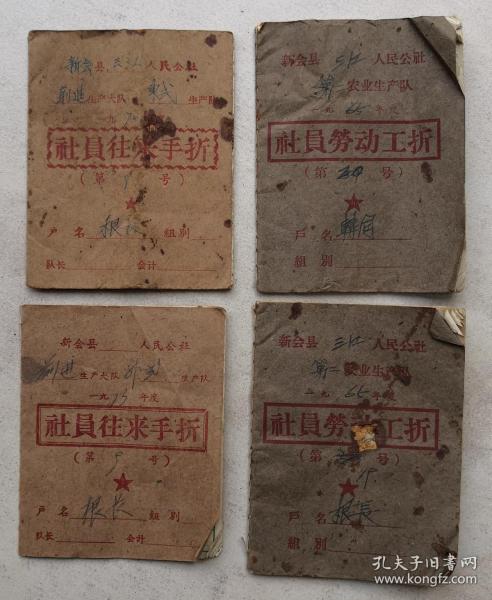 新会县 三江 人民公社
前进 生产大队 生产队
一九70年度
社員往来手折
(第 9 号)
戶名 根长 組別
队长 会计
新会县 三江 人民公社
第 农业生产队
一九65年度
社員勞动工折
(第 号)
戶名
組別
新会县 人民公社
前进 生产大队 生产队
一九75年度
社員往来手折
(第 9 号)
戶名 根长 組別
队长 会計
新会县 三江 人民公社
第二农业生产队
一九65年度
社員勞 工折
(第 号)
戶名 根長
組別
孔夫子旧书网
www.kongfz.com